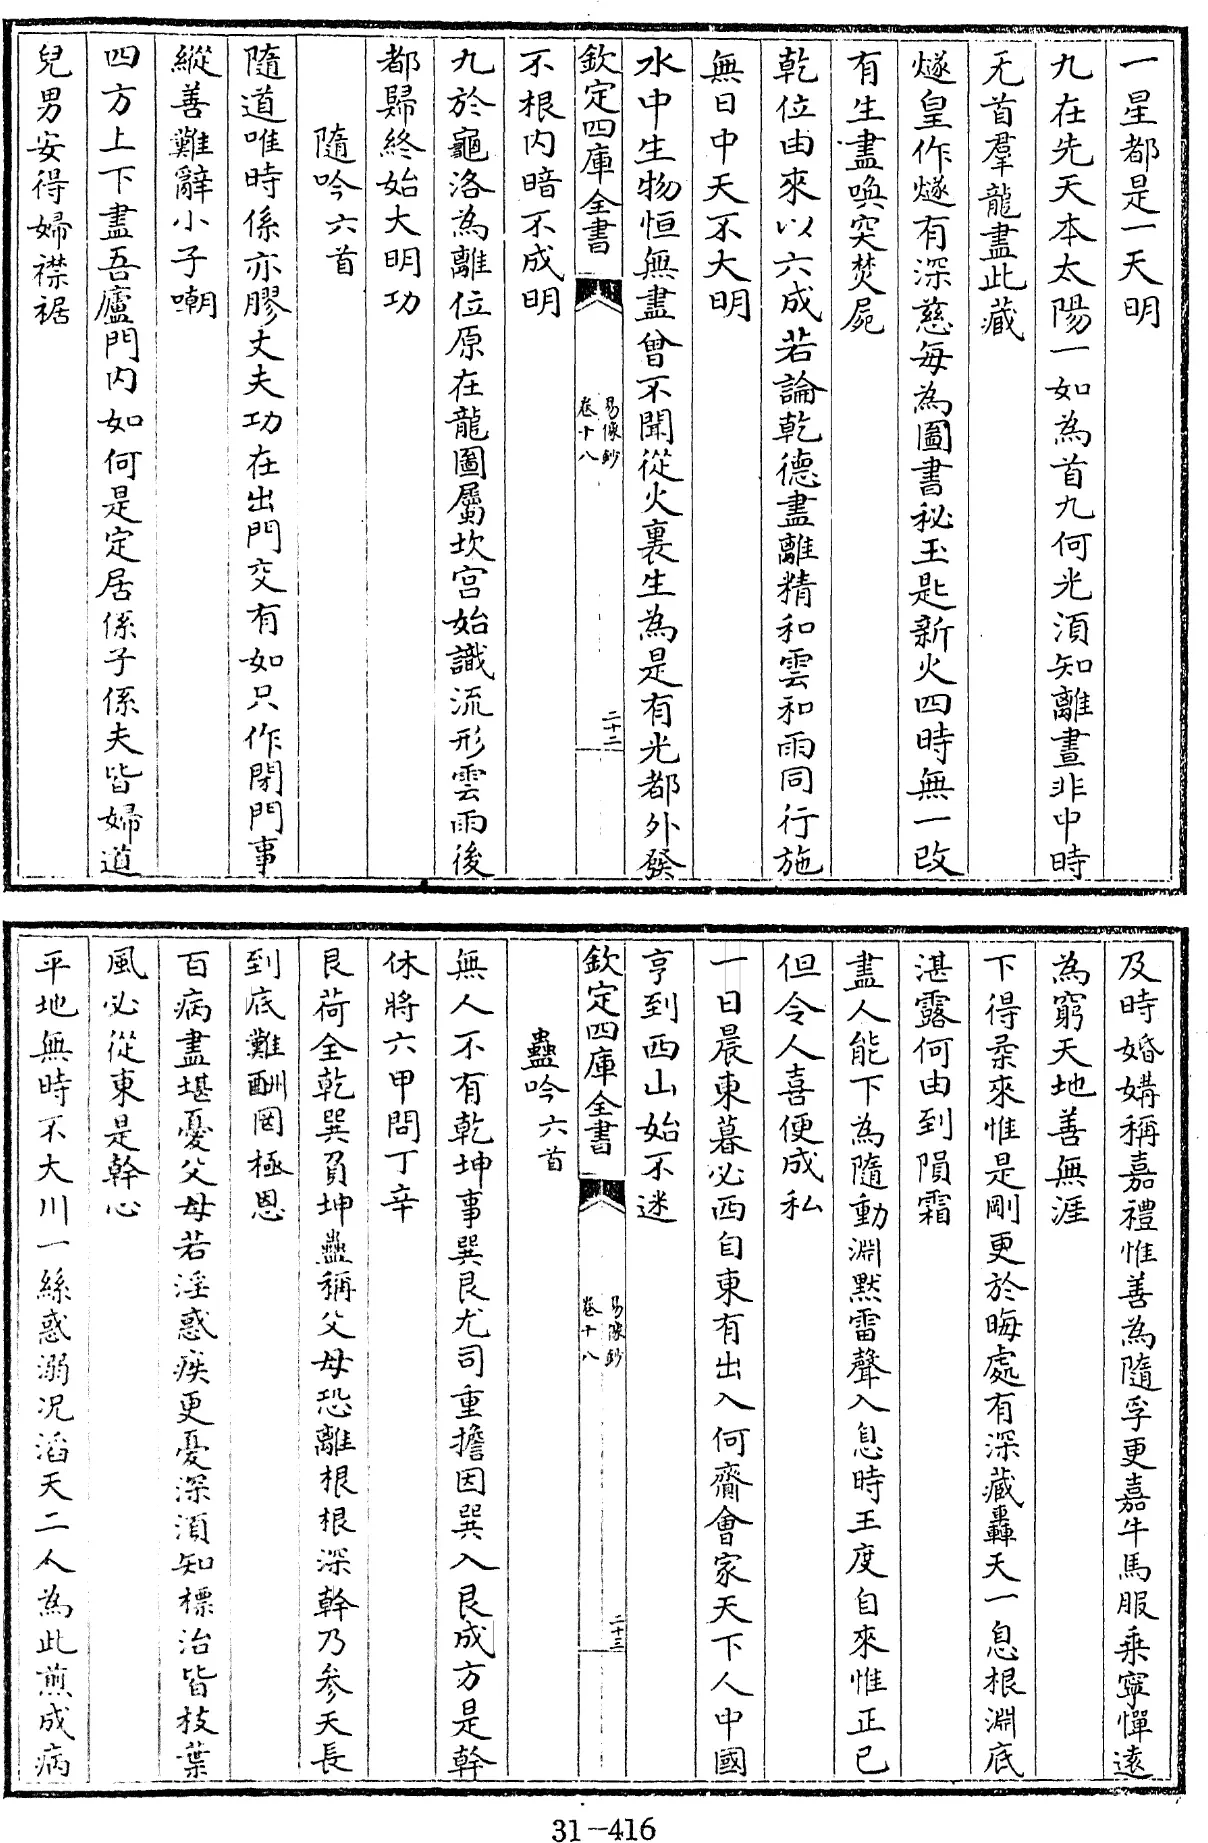 一星都是一天明
九在先天本太陽一如為首九何光湏知離晝非中時
无首羣龍盡此藏
燧皇作燧有深慈每為圖書秘玉匙新火四時無一改
有生盡喚突焚屍
乾位由來以六成若論乾德盡離精和雲和雨同行施
無日中天不大明
水中生物恒無盡曾不聞從火裏生為是有光都外發
欽定四庫全書
易像鈔
卷十八
二十二
不根内暗不成明
九於龜洛為離位原在龍圖屬坎宫始識流形雲雨後
都歸終始大明功
隨吟六首
隨道唯時係亦膠丈夫功在出門交有如只作閉門事
縱善難辭小子嘲
四方上下盡吾廬門内如何是定居係子係夫皆婦道
兒男安得婦襟裾
及時婚媾稱嘉禮惟善為隨孚更嘉牛馬服乘寧憚遠
為窮天地善無涯
下得柔來惟是剛更於晦處有深藏轟天一息根淵底
湛露何由到隕霜
盡人能下為隨動淵默雷聲入息時王度自來惟正已
但令人喜便成私
一日晨東暮必西自東有出入何齋會家天下人中國
亨到西山始不迷
欽定四庫全書
易像鈔
卷十八
二十三
蠱吟六首
無人不有乾坤事巽艮尤司重擔因巽入艮成方是幹
休將六甲問丁辛
艮荷全乾巽負坤蠱稱父母恐離根根深幹乃參天長
到底難酬罔極恩
百病盡堪憂父母若淫惑疾更憂深湏知標治皆枝葉
風必從東是幹心
平地無時不大川一絲惑溺况滔天二人為此煎成病
31-416